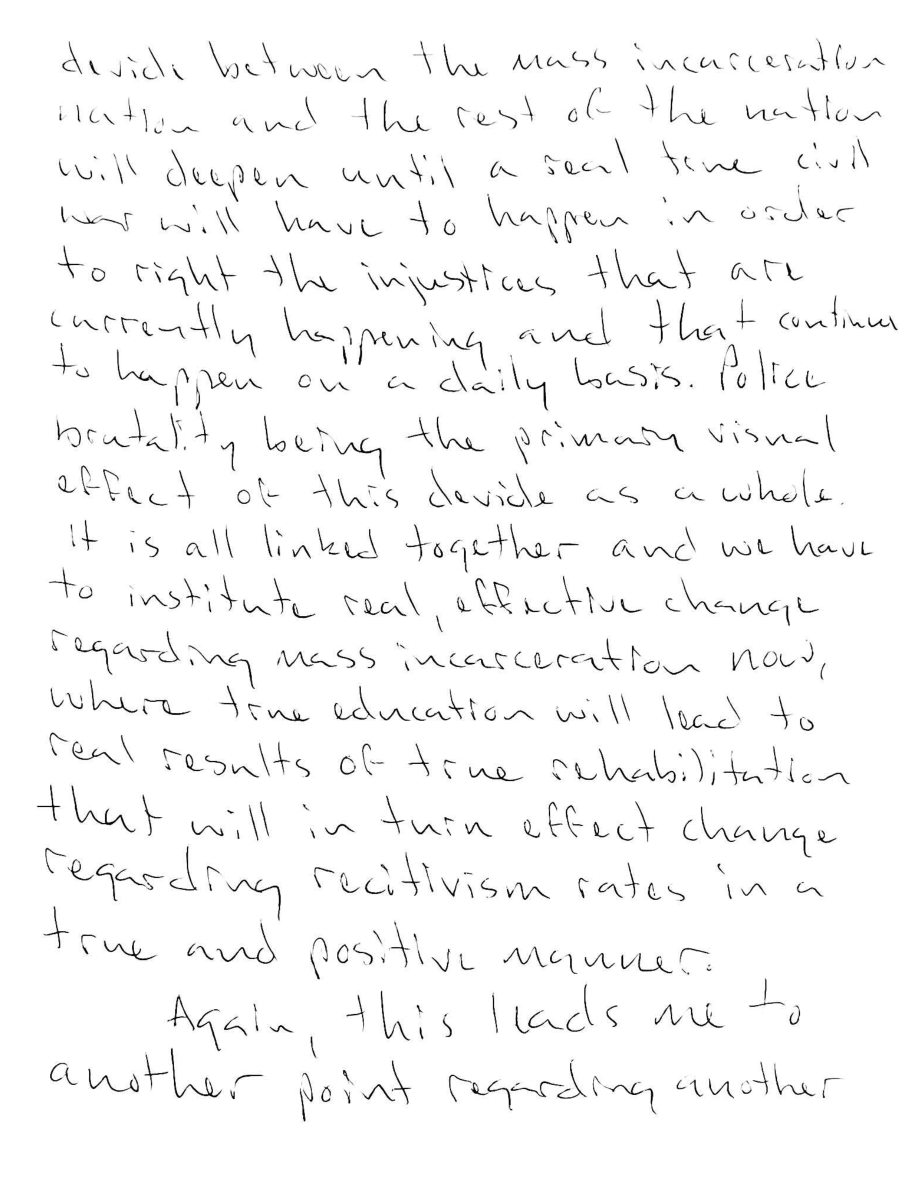 devide between the mass incarceration
nation and the rest of the nation
will deepen until a real true civil
war will have to happen in order
to right the injustices that are
currently happening and that continue
to happen on a daily basis. Police
brutality being the primary visual
effect of this devide as a whole.
It is all linked together and we have
to institute real, effective change
regarding mass incarceration now,
where true education will lead to
real results of true rehabilitation
that will in turn effect change
regarding recitivism rates in a
true and positive manner.
Again, this leads me to
another point regarding another